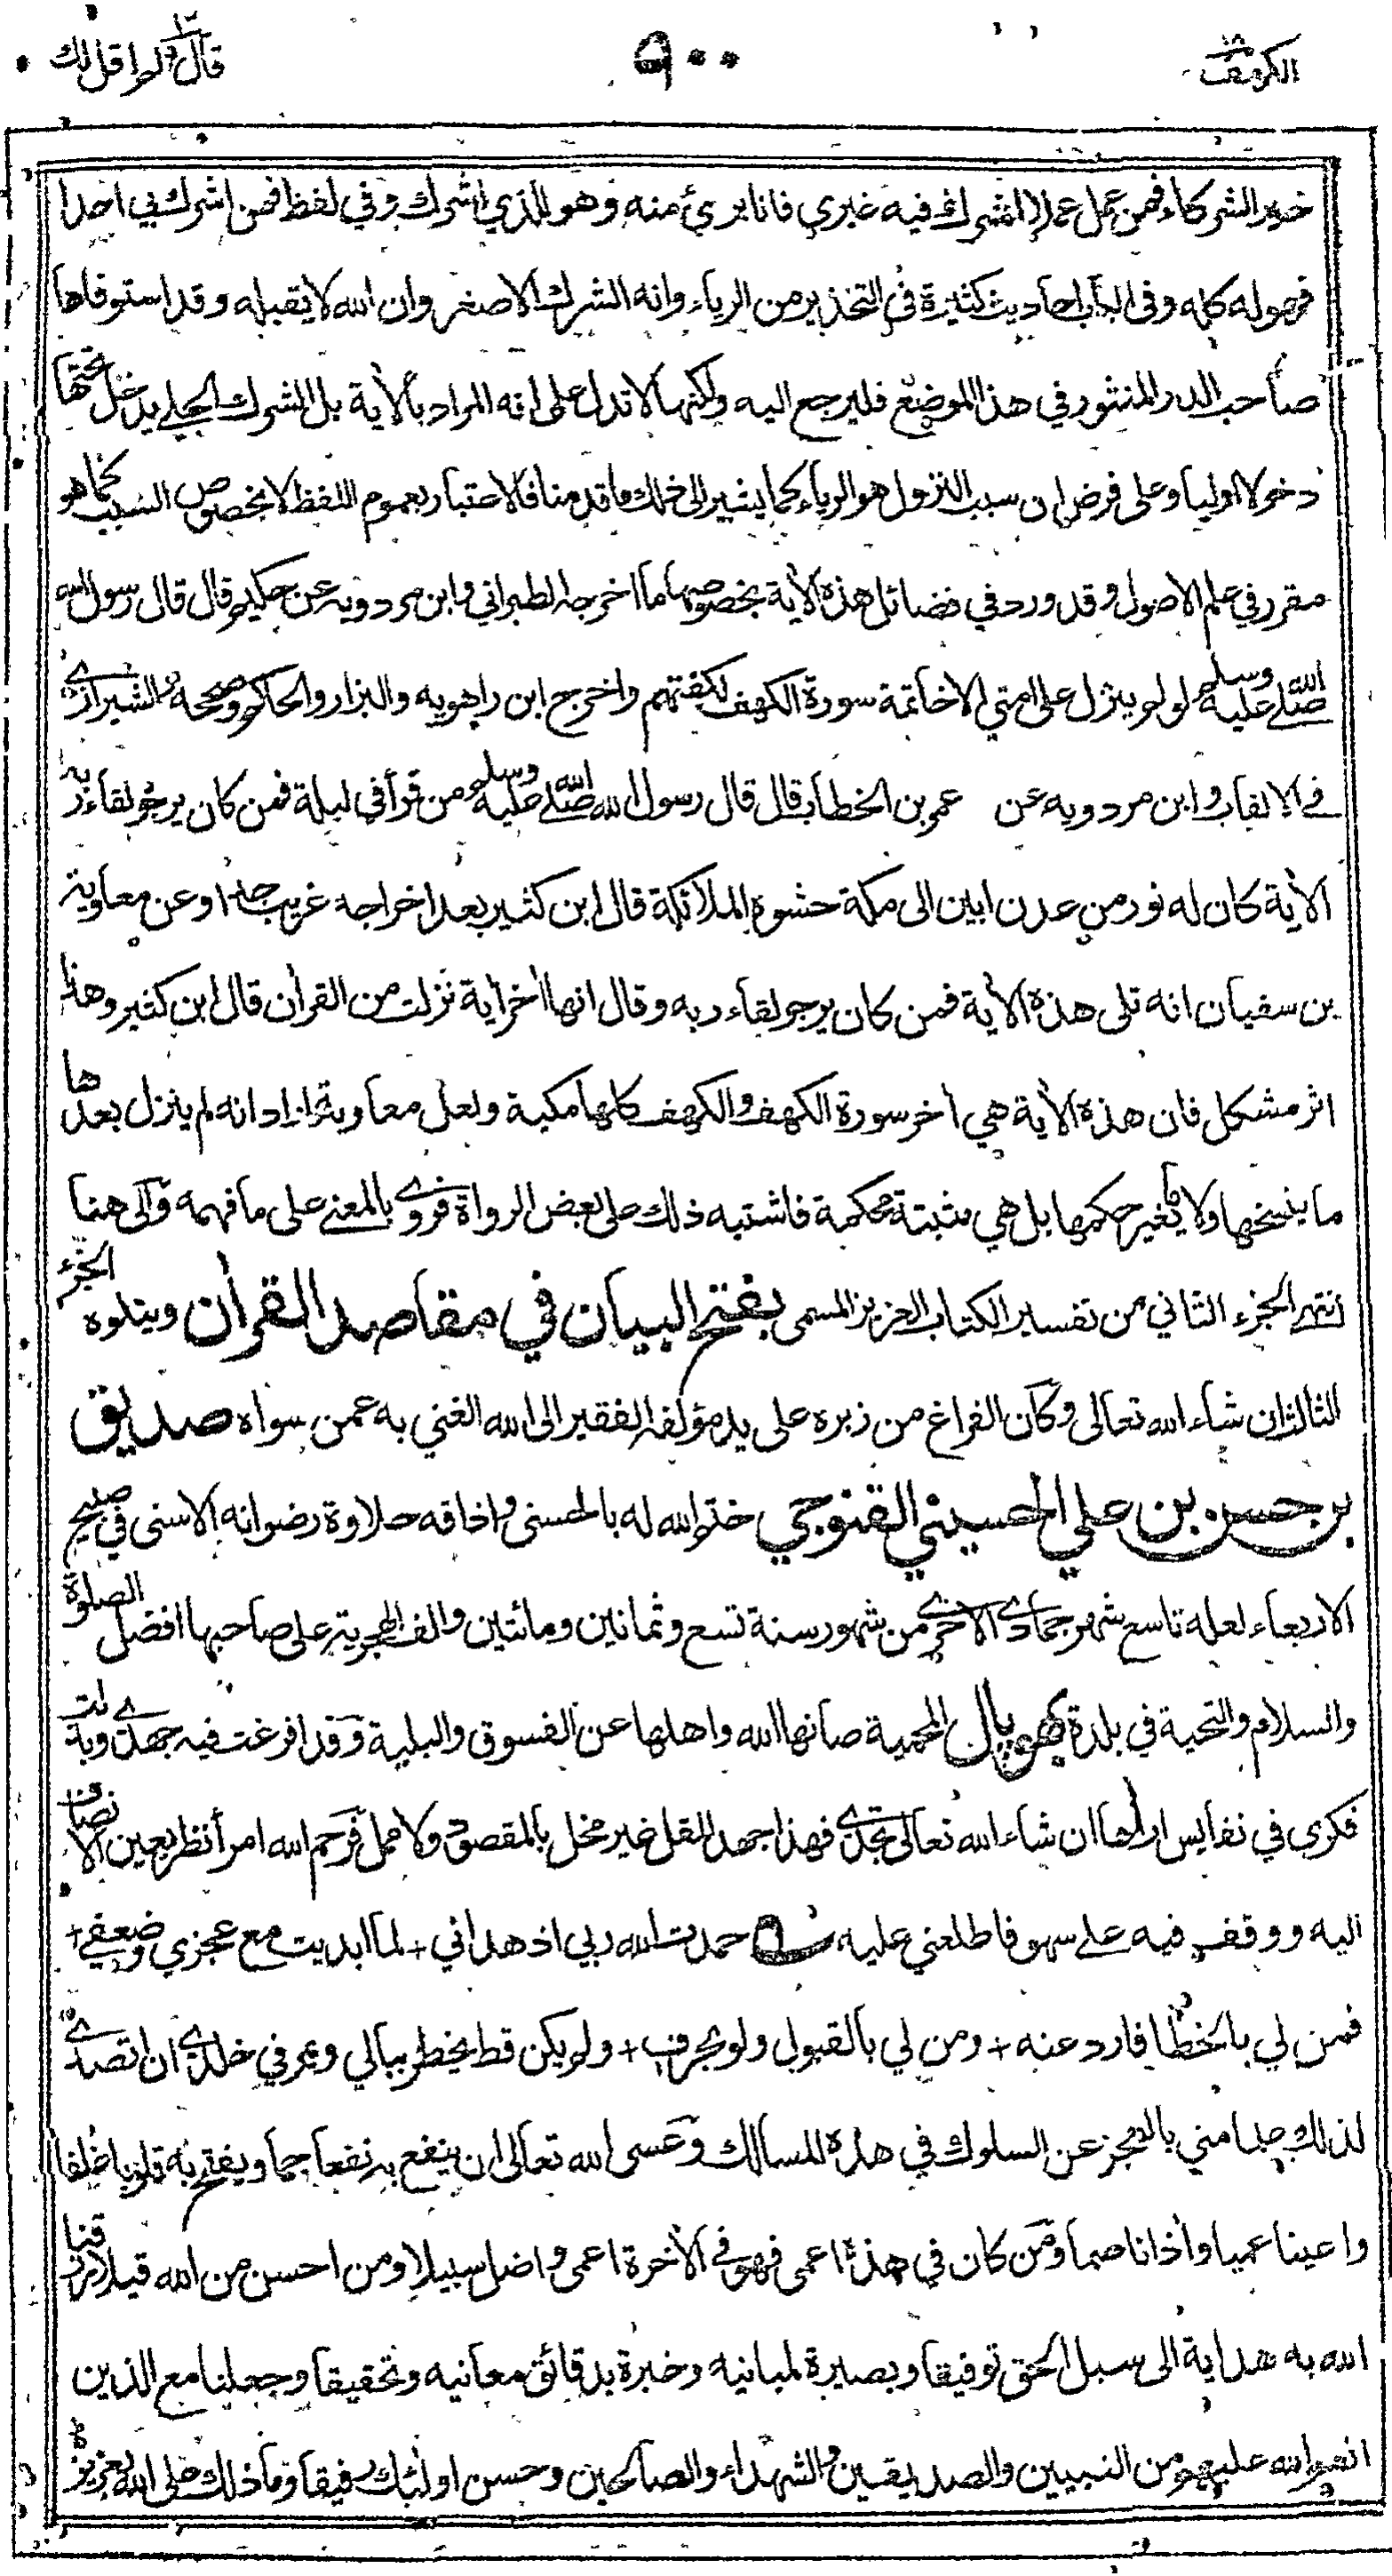 قال الم اقل لك ١٦
٩٠٠
الكهف ١٨
خير الشركاء فمن عمل عملا اشرك فيه غيري فانا بريئ منه وهو للذي اشرك وفي لفظ فمن اشرك بي احدا
فهو له كله وفى الباب احاديث كثيرة في التحذير من الرياء وانه الشرك الاصغر وان الله لا يقبله وقد استوفاها
صاحب الدر المنثور في هذا الموضع فليرجع اليه ولكنها لا تدل على انه المراد بالأية بل الشرك الجلي يدخل تحتها
دخولا اوليا وعلى فرض ان سبب النزول هو الرياء كما يشير الى ذلك ما قدمنا فالاعتبار بعموم اللفظ لا بخصوص السبب كما هو
مقرر في علم الاصول وقد ورد في فضائل هذه الأية بخصوصها ما اخرجه الطبراني وابن مردويه عن حكيم قال قال رسول الله
صلى الله عليه وسلم لو لم ينزل على امتي الا خاتمة سورة الكهف لكفتهم واخرج ابن راهويه والبزار والحاكم وصححه والشيرازي
في الالقاب وابن مردويه عن عمر بن الخطاب قال قال رسول الله صلى الله عليه وسلم من قرأ في ليلة فمن كان يرجو لقاء ربه
الأية كان له نور من عدن ابين الى مكة حشوه الملائكة قال ابن كثير بعد اخراجه غريب جدا وعن معاوية
بن سفيان انه تلى هذه الأية فمن كان يرجو لقاء ربه وقال انها اخر أية نزلت من القرأن قال ابن كثير وهذا
اثر مشكل فان هذه الأية هي أخر سورة الكهف والكهف كلها مكية ولعل معاوية اراد انه لم ينزل بعدها
ما ينسخها ولا يغير حكمها بل هي مثبتة محكمة فاشتبه ذلك على بعض الرواة فروى بالمعنى على ما فهمه والى هنا
انتهى الجزء الثاني من تفسير الكتاب العزيز المسمى بفتح البيان في مقاصد القرأن ويتلوه الجزء
الثالث ان شاء الله تعالى وكان الفراغ من زبره على يد مؤلفه الفقير الى الله الغني به عمن سواه صديق
بن حسن بن علي الحسيني القنوجي ختم الله له بالحسنى واذاقه حلاوة رضوانه الاسنى في صبح
الاربعاء لعله تاسع شهر جمادى الاخرى من شهور سنة تسع وثمانين ومائتين والف الهجرية على صاحبها افضل الصلوة
والسلام والتحية في بلدة بهوپال المحمية صانها الله واهلها عن الفسوق والبلية وقد افرغت فيه جهدي وبذلت
فكرى في نفايس اراها ان شاء الله تعالى تجدى فهذا جهد المقل غير مخل بالمقصود ولا ممل فرحم الله امرأ نظر بعين الانصاف
اليه ووقف فيه على سهو فاطلعني عليه حمدت الله ربي اذ هداني + لما ابديت مع عجزي وضعفي +
فمن لي بالخطا فارد عنه + ومن لي بالقبول ولو بحرف + ولم يكن قط يخطر ببالي ويمر في خلدى ان اتصدى
لذلك علما مني بالعجز عن السلوك في هذه المسالك وعسى الله تعالى ان ينفع به نفعا جما ويفتح به قلوبا غلفا
واعينا عميا وأذانا صما ومن كان في هذه اعمى فهو في الأخرة اعمى واضل سبيلا ومن احسن من الله قيلا رزقنا
الله به هداية الى سبل الحق توفيقا وبصيرة لمبانيه وخبرة بدقائق معانيه وتحقيقا وجعلنا مع الذين
انعم الله عليهم من النبيين والصديقين والشهداء والصالحين وحسن اولئك رفيقا وما ذلك على الله بعزيز